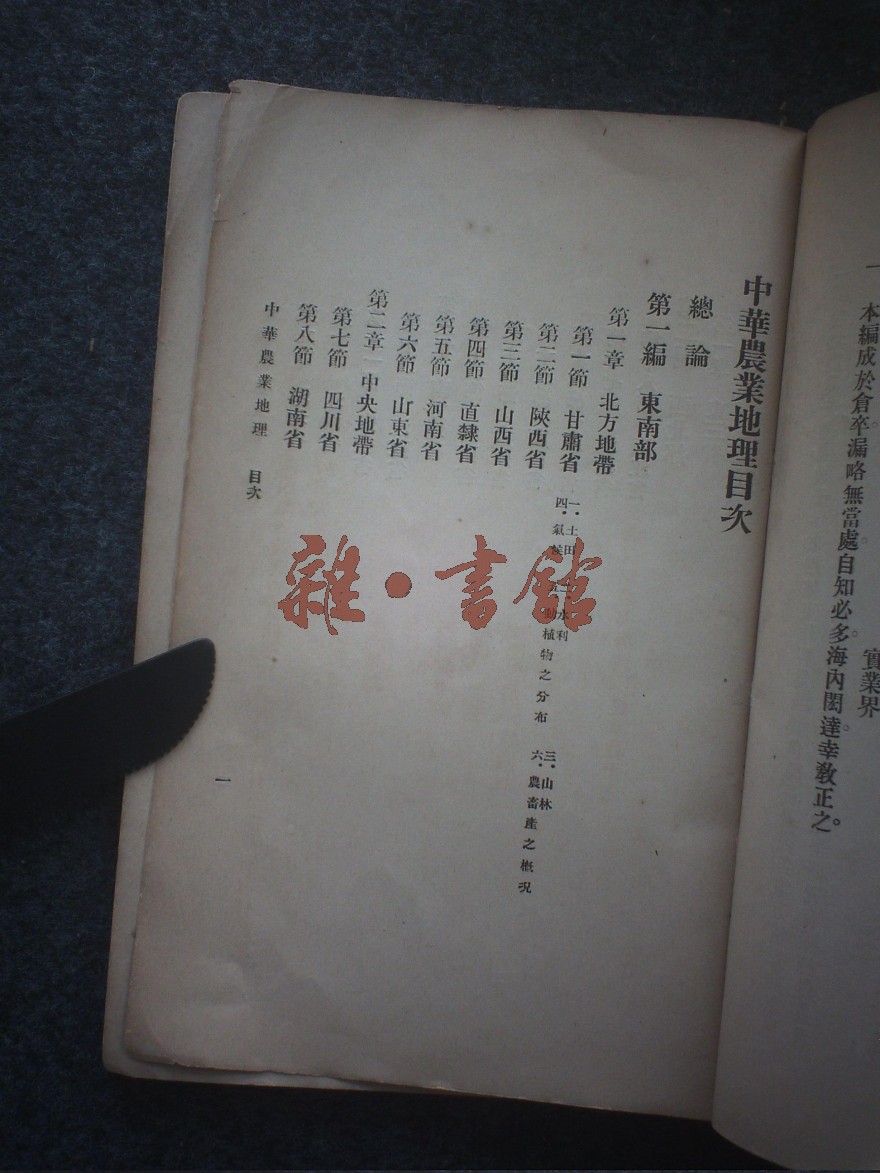 一 本編成於倉卒。漏略無當處。自知必多。海內閎達。幸教正之。
實業界
中華農業地理目次
總論
第一編 東南部
第一章 北方地帶
第一節 甘肅省
一．土田 二．水利 三．山林
四．氣候 五．動植物之分布 六．農畜產之概況
第二節 陝西省
第三節 山西省
第四節 直隸省
第五節 河南省
第六節 山東省
第二章 中央地帶
第七節 四川省
第八節 湖南省
中華農業地理 目次
一
雜·書館